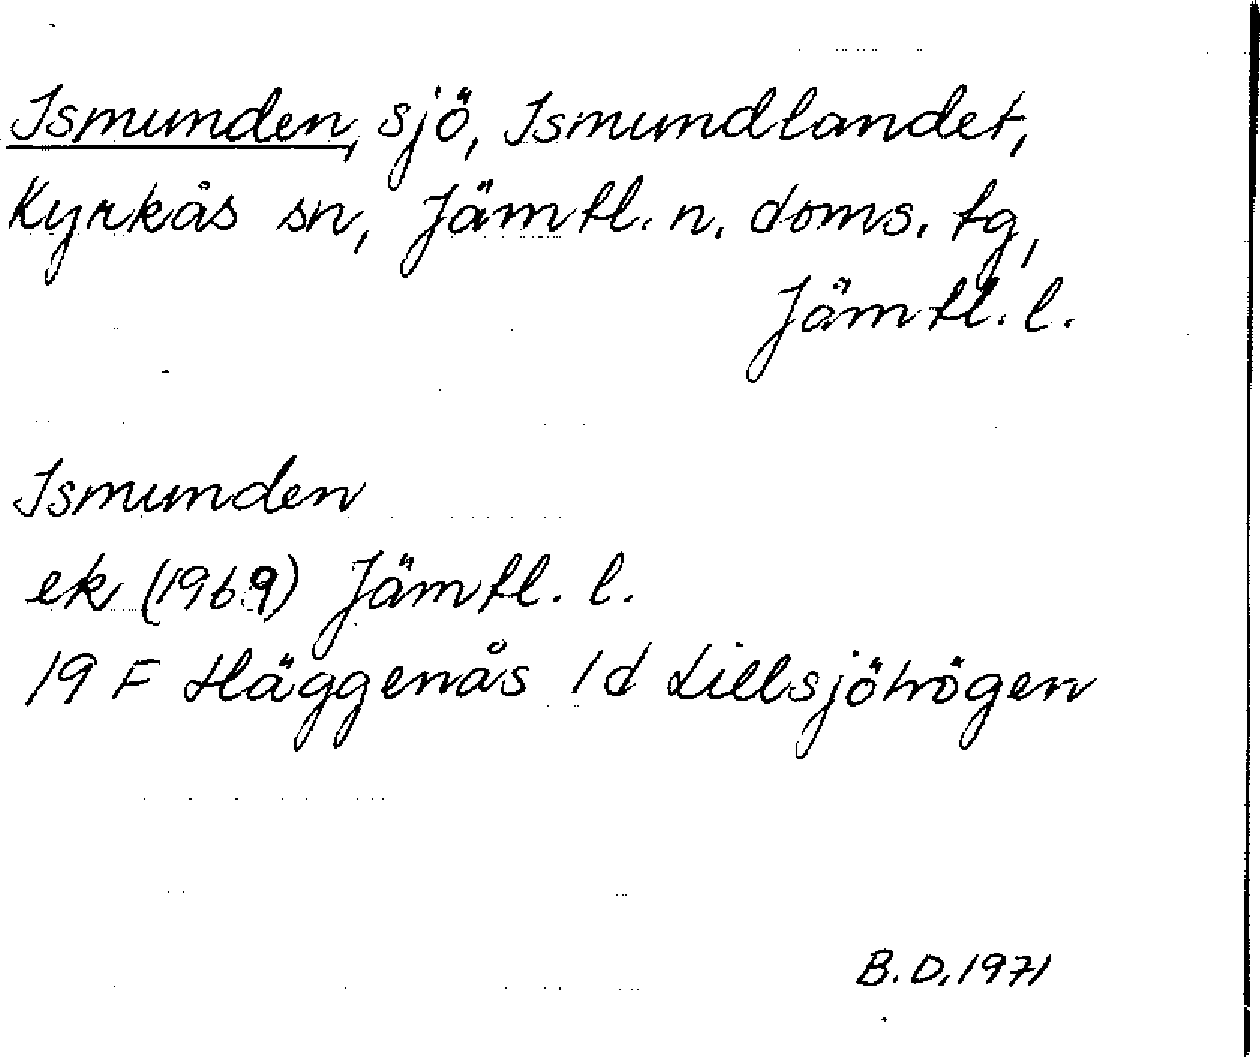 Ismunden, sjö, Ismundlandet,
Kyrkås sn, Jämtl. n. doms. tg,
Jämtl. l.
Ismunden
ek (1969) Jämtl. l.
19 F Häggenås 1d Lillsjöhögen
B.D. 1971